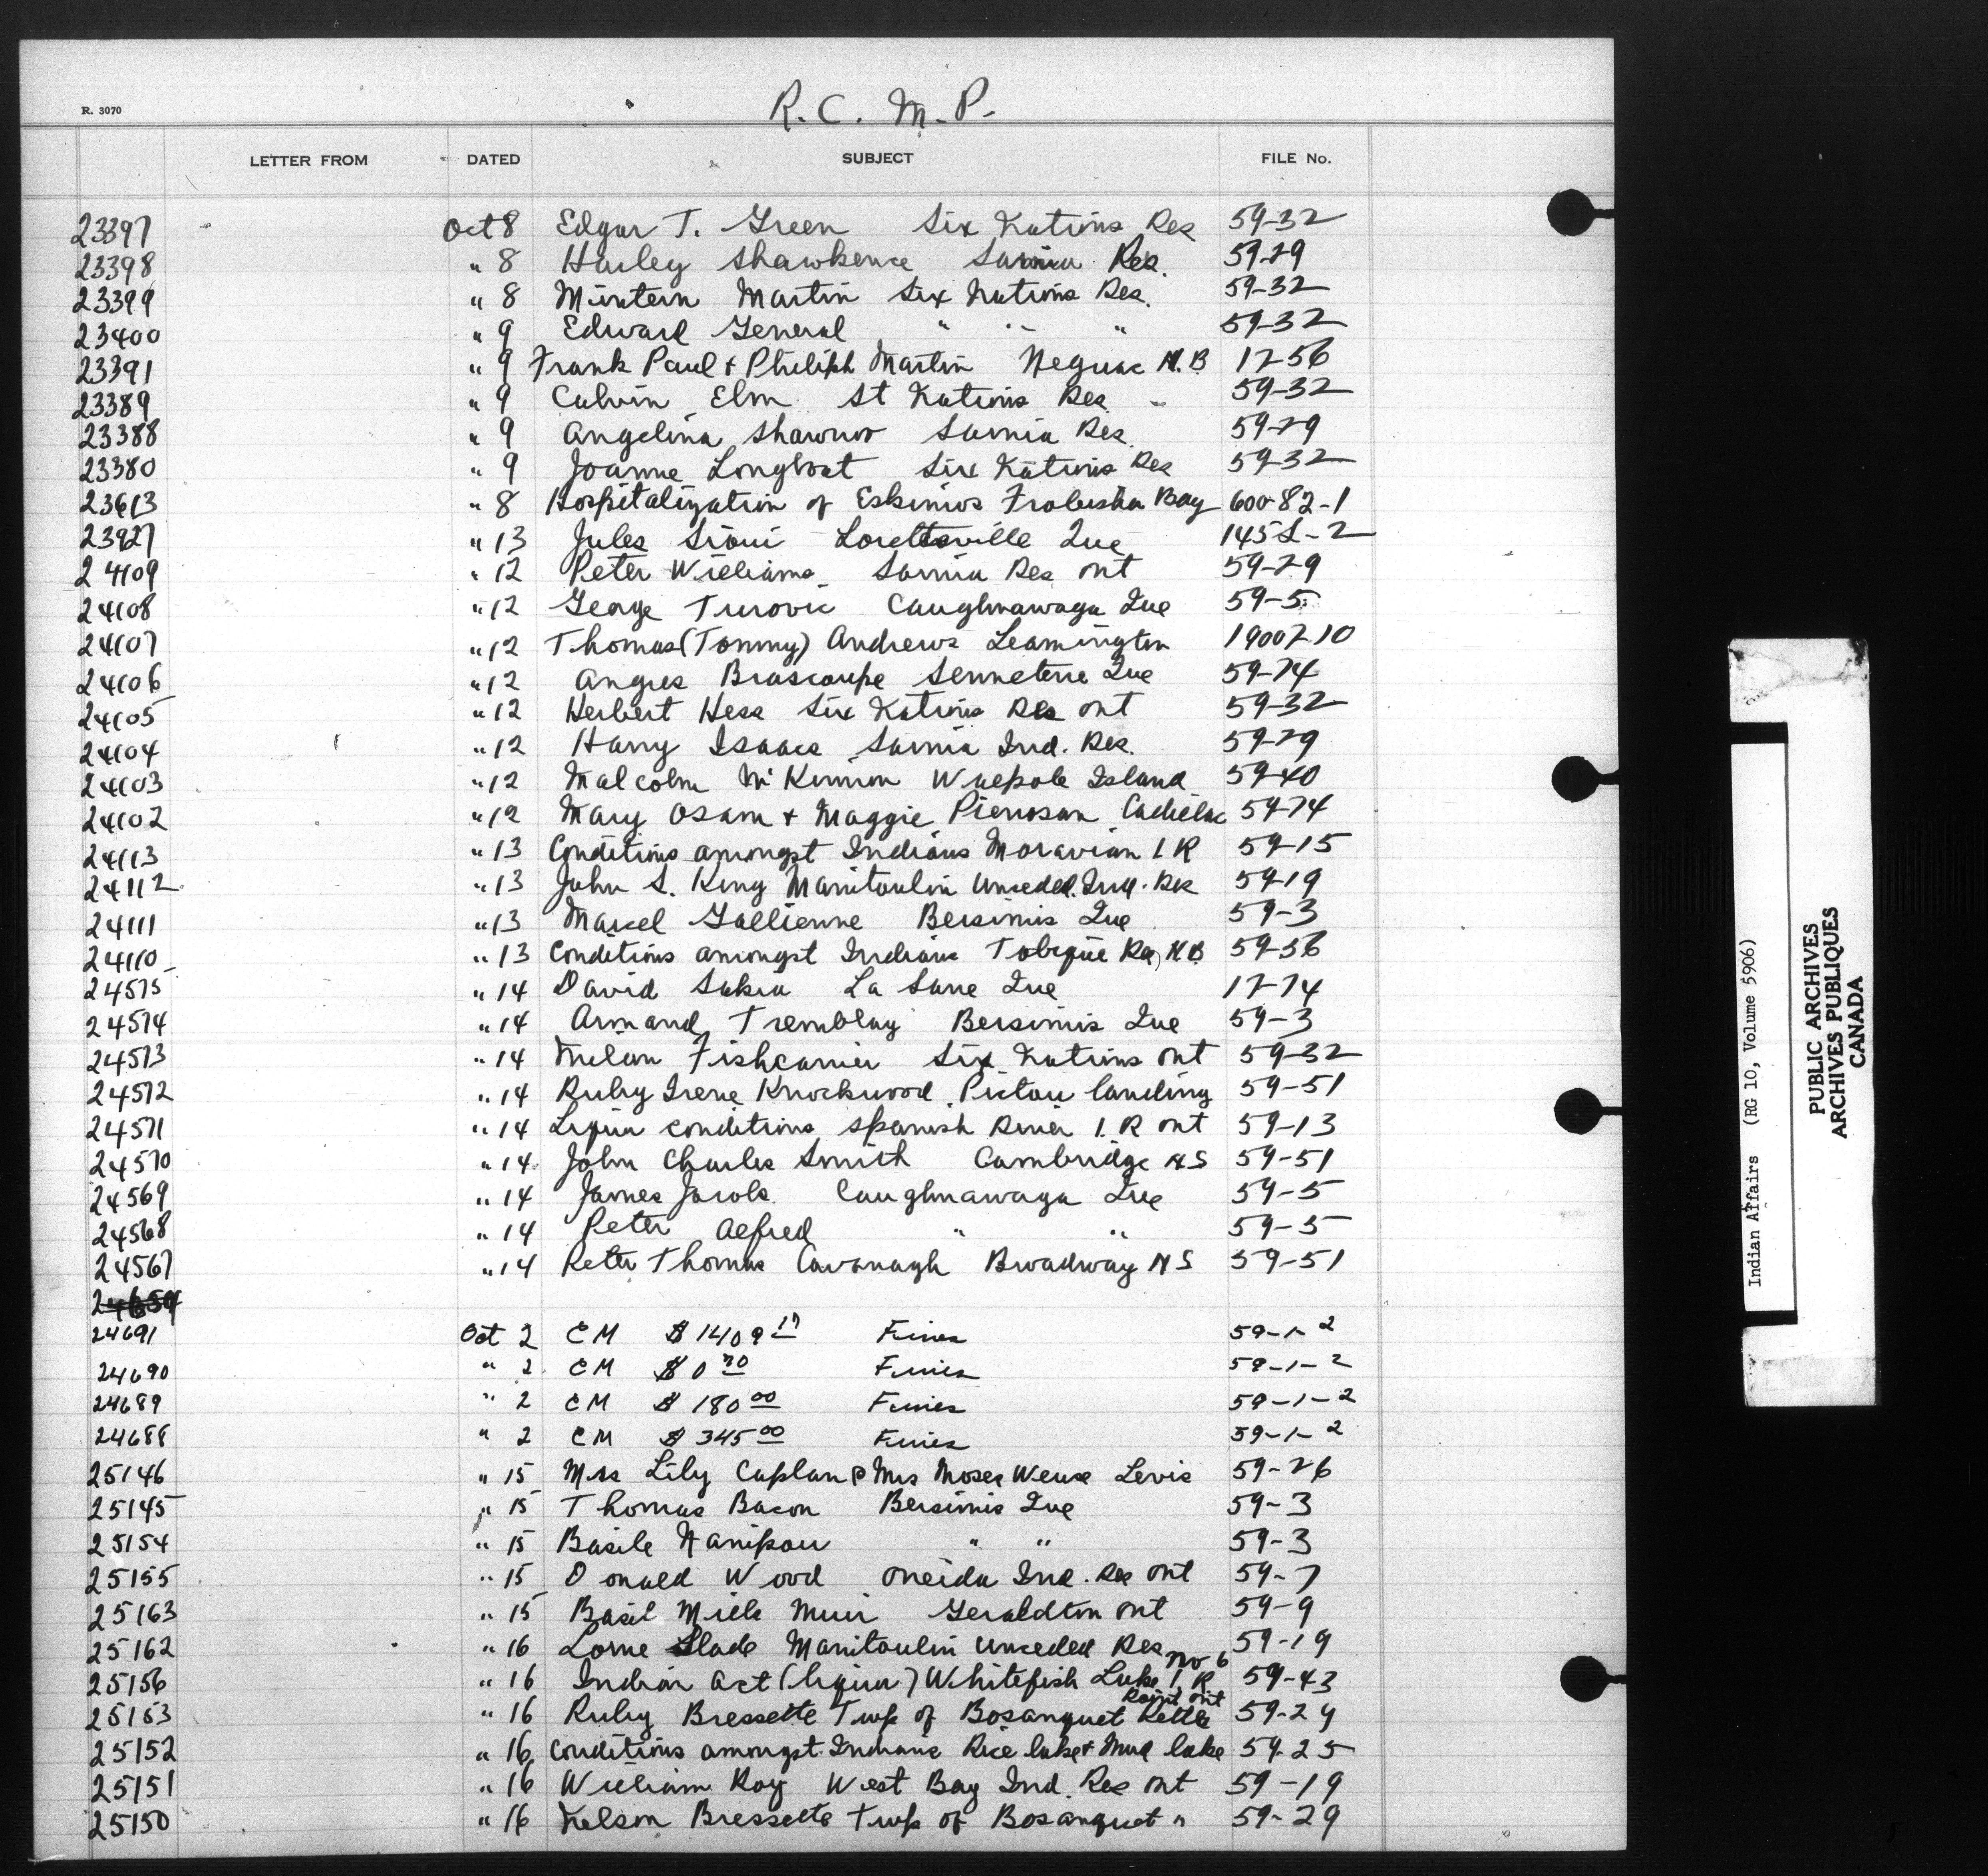 R. C. M. P.
R. 3070
LETTER FROM DATED SUBJECT FILE No.
23397 Oct 8 Edgar T. Green Six Nations Res 59-32
23398 " 8 Harley Shawkence Sarnia Res. 59-29
23399 " 8 Mintern Martin Six Nations Res. 59-32
23400 " 9 Edward General " " " 59-32
23391 " 9 Frank Paul + Philiph Martin Neguac N.B 17-56
23389 " 9 Calvin Elm St Nations Res 59-32
23388 " 9 Angelina Shawno Sarnia Res. 59-29
23380 " 9 Joanne Longboat Six Nations Res 59-32
23613 " 8 Hospitalization of Eskimos Frobisha Bay 600-82-1
23927 " 13 Jules Sioui Lorettville Que 145 S-2
24109 " 12 Peter Williams Sarnia Res Ont 59-29
24108 " 12 George Turovic Caughnawaga Que 59-5
24107 " 12 Thomas (Tommy) Andrews Leamington 19007-10
24106 " 12 Angus Brascoupe Senneterre Que 59-74
24105 " 12 Herbert Hess Six Nations Res Ont 59-32
24104 " 12 Harry Isaacs Sarnia Ind. Res. 59-29
24103 " 12 Malcolm McKinnon Walpole Island 59-40
24102 " 12 Mary Osam + Maggie Pienosan Cadielac 59-74
24113 " 13 Conditions amongst Indians Moravian I R 59-15
24112 " 13 John S. King Manitoulin Unceded. Ind. Res 59-19
24111 " 13 Marcel Gallienne Bersimis Que 59-3
24110 " 13 Conditions amongst Indians Tobique Res, N.B 59-56
24575 " 14 David Sakia La Sarre Que 17-74
24574 " 14 Armand Tremblay Bersimis Que 59-3
24573 " 14 Milan Fishcarrier Six Nations Ont 59-32
24572 " 14 Ruby Irene Knockwood Pictou landing 59-51
24571 " 14 Liquor conditions Spanish River I. R Ont 59-13
24570 " 14 John Charles Smith Cambridge N S 59-51
24569 " 14 James Jacobs Caughnawaga Que 59-5
24568 " 14 Peter Alfred " " 59-5
24567 " 14 Peter Thomas Cavanagh Broadway N S 59-51
24691 Oct 2 CM $ 1409 17 Fines 59-1-2
24690 " 2 CM $ 0 70 Fines 59-1-2
24689 " 2 CM $ 180 00 Fines 59-1-2
24688 " 2 CM $ 345 00 Fines 59-1-2
25146 " 15 Mrs Lily Caplan & Mrs Moses Weuse Levis 59-26
25145 " 15 Thomas Bacon Bersimis Que 59-3
25154 " 15 Basile Nanipou " " 59-3
25155 " 15 Donald Wood Oneida Ind. Res Ont 59-7
25163 " 15 Basil Mick Muir Geraldton Ont 59-9
25162 " 16 Lorne Slade Manitoulin Unceded Res 59-19
25156 " 16 Indian Act (liquor) Whitefish Lake I. R No 6 59-43
25153 " 16 Ruby Bressette Twp of Bosanquet Kettle Point Ont 59-29
25152 " 16 Conditions amongst Indians Rice lake + Mud lake 59-25
25151 " 16 William Roy West Bay Ind. Res Ont 59-19
25150 " 16 Nelson Bressette Twp of Bosanquet " 59-29
Indian Affairs (RG 10, Volume 5906)
PUBLIC ARCHIVES
ARCHIVES PUBLIQUES
CANADA